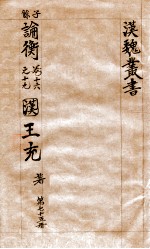 漢魏叢書
子餘
論衡
卷十六
之十九
漢王充 著
第七十五冊